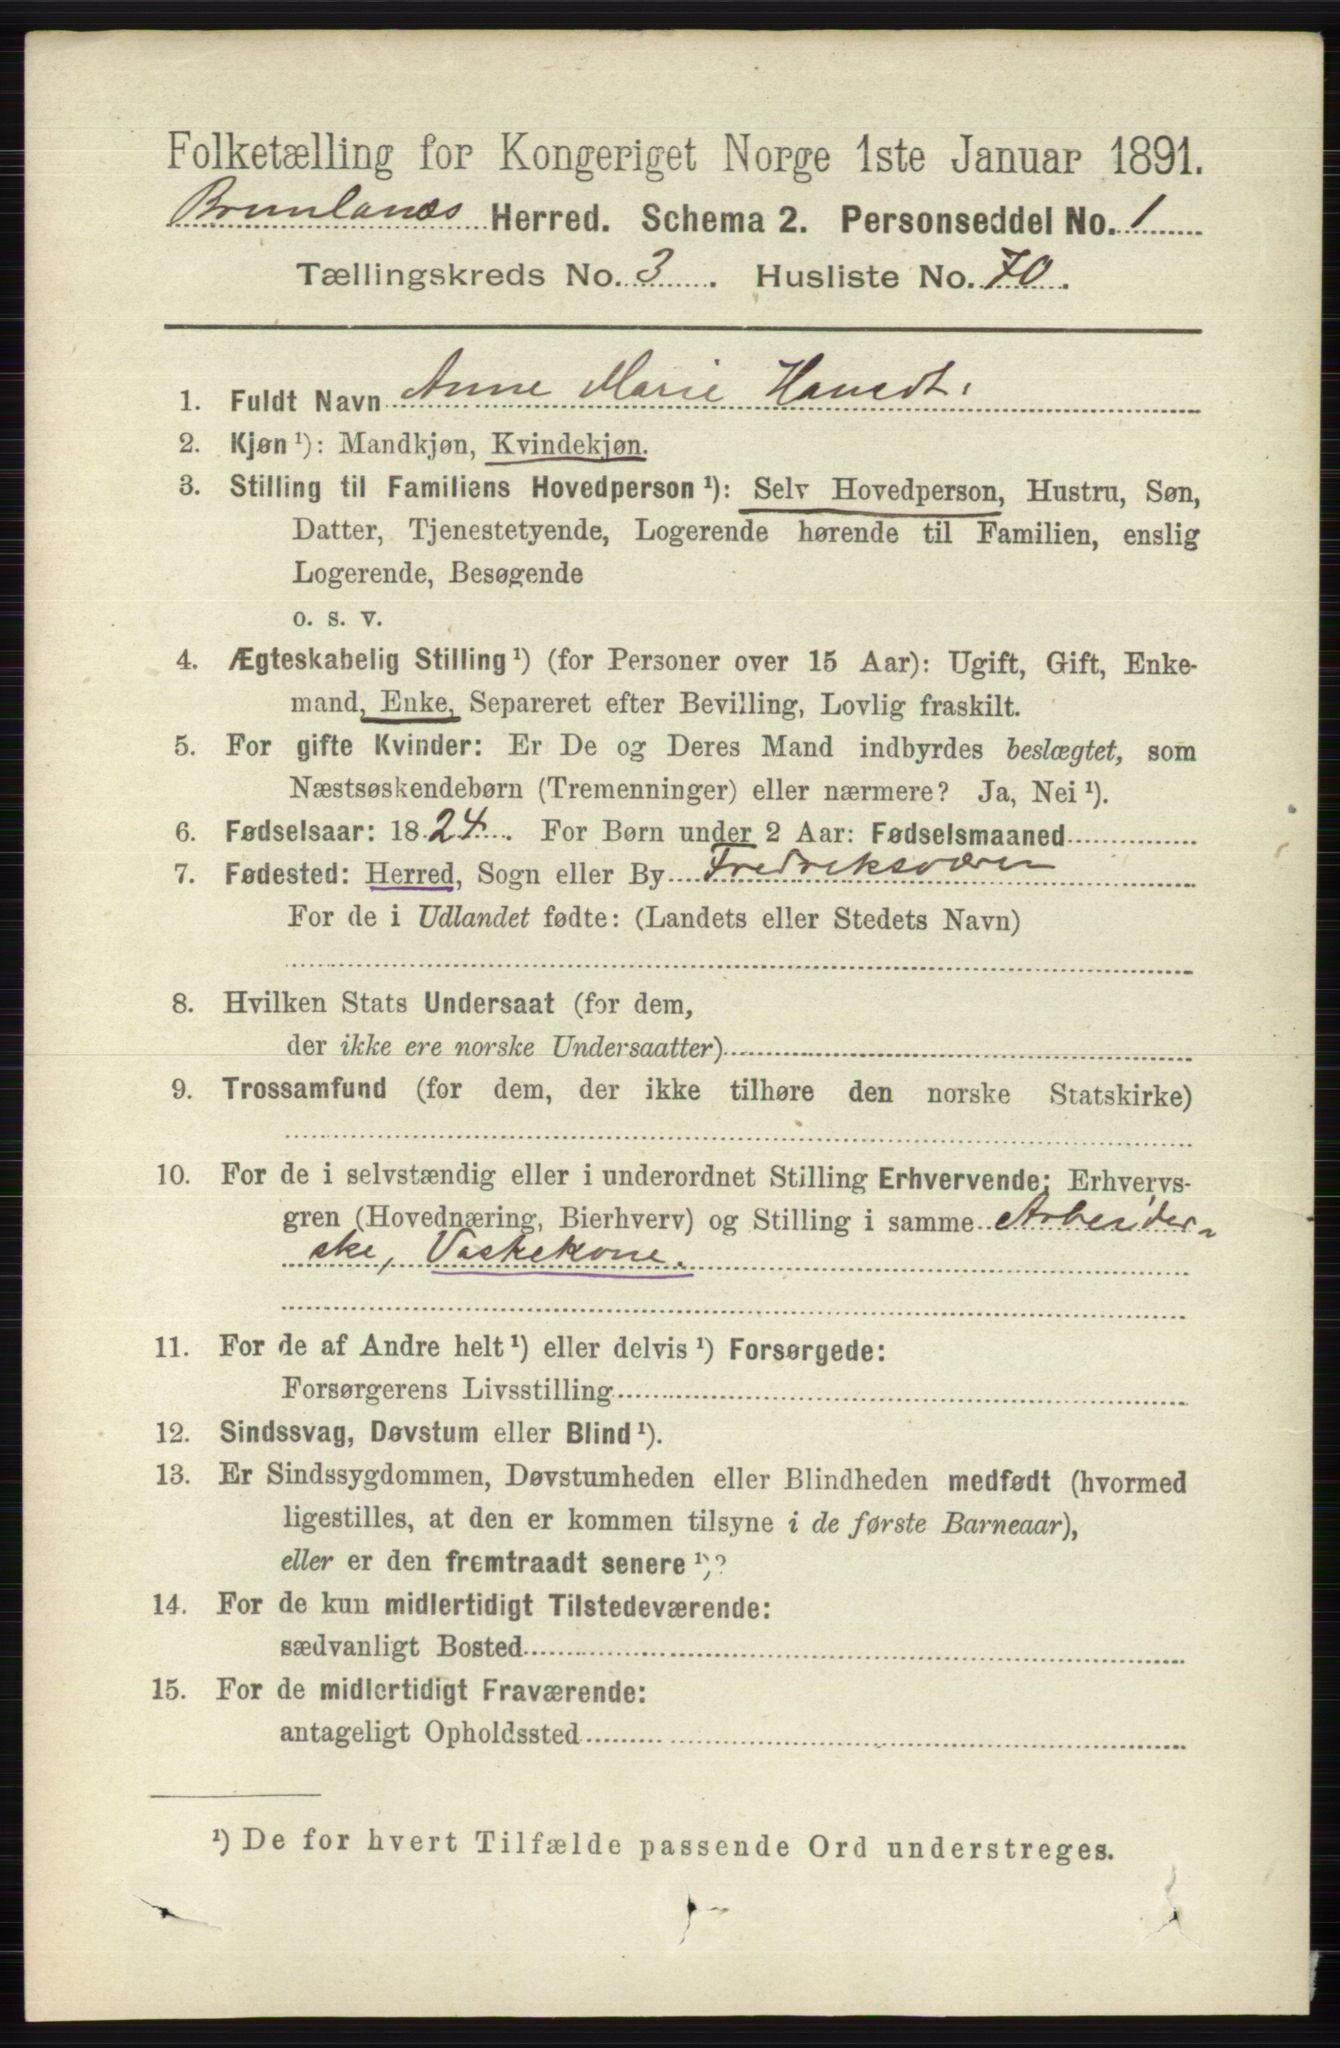 Folketælling for Kongeriget Norge 1ste Januar 1891.
Brunlanæs Herred. Schema 2. Personseddel No. 1
Tællingskreds No. 3. Husliste No. 70.
1. Fuldt Navn Anne Marie
2. Kjøn ¹): Mandkjøn, Kvindekjøn.
3. Stilling til Familiens Hovedperson ¹): Selv Hovedperson, Hustru, Søn,
Datter, Tjenestetyende, Logerende hørende til Familien, enslig
Logerende, Besøgende
o. s. v.
4. Ægteskabelig Stilling ¹) (for Personer over 15 Aar): Ugift, Gift, Enke-
mand, Enke, Separeret efter Bevilling, Lovlig fraskilt.
5. For gifte Kvinder: Er De og Deres Mand indbyrdes beslægtet, som
Næstsøskendebørn (Tremenninger) eller nærmere? Ja, Nei ¹).
6. Fødselsaar: 1824. For Børn under 2 Aar: Fødselsmaaned
7. Fødested: Herred, Sogn eller By Fredriksværn
For de i Udlandet fødte: (Landets eller Stedets Navn)
8. Hvilken Stats Undersaat (for dem,
der ikke ere norske Undersaatter)
9. Trossamfund (for dem, der ikke tilhøre den norske Statskirke)
10. For de i selvstændig eller i underordnet Stilling Erhvervende: Erhvervs-
gren (Hovednæring, Bierhverv) og Stilling i samme Arbeider-
ske, Vaskekone.
11. For de af Andre helt ¹) eller delvis ¹) Forsørgede:
Forsørgerens Livsstilling
12. Sindssvag, Døvstum eller Blind ¹).
13. Er Sindssygdommen, Døvstumheden eller Blindheden medfødt (hvormed
ligestilles, at den er kommen tilsyne i de første Barneaar),
eller er den fremtraadt senere ¹)?
14. For de kun midlertidigt Tilstedeværende:
sædvanligt Bosted
15. For de midlertidigt Fraværende:
antageligt Opholdssted
¹) De for hvert Tilfælde passende Ord understreges.